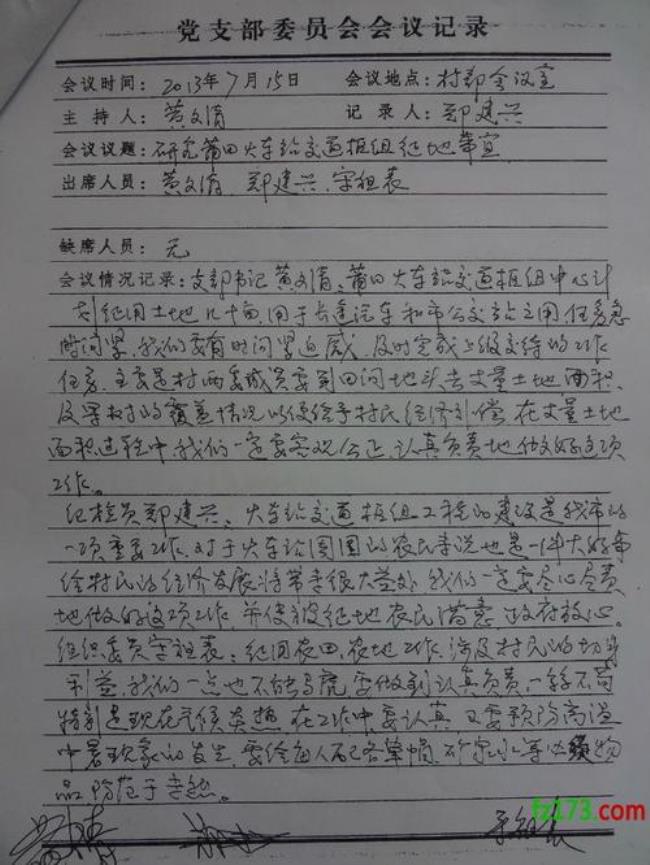 党支部委员会会议记录
会议时间：2013年7月15日 会议地点：村部会议室
主持人：黄文清 记录人：郑建兴
会议议题：研究莆田火车站交通枢纽征地事宜
出席人员：黄文清 郑建兴、宋祖表
缺席人员：无
会议情况记录：支部书记黄文清：莆田火车站交通枢纽中心计
划征用土地几十亩，用于长途汽车和市公交站之用，任务急
时间紧，我们要有时间紧迫感，及时完成上级交待的工作
任务，主要是村两委成员要到田间地头去丈量土地面积，
及果树的覆盖情况以便给予村民经济补偿，在丈量土地
面积过程中我们一定要客观公正，认真负责地做好这项
工作。
纪检员郑建兴：火车站交通枢纽工程的建设是我市的
一项重要工作，对于火车站周围的农民来说也是一件大好事
给村民的经济发展将带来很大益处，我们一定要尽心尽责
地做好这项工作，并使被征地农民满意，政府放心。
组织委员宋祖表：征用农田、农地工作，涉及村民的切身
利益，我们一点也不能马虎，要做到认真负责，一丝不苟
特别是现在气候炎热，在工作中要认真，又要预防高温
中暑现象的发生，要给每人配备草帽、矿泉水等必须物
品，防范于未然。
宋祖表
fz173.com